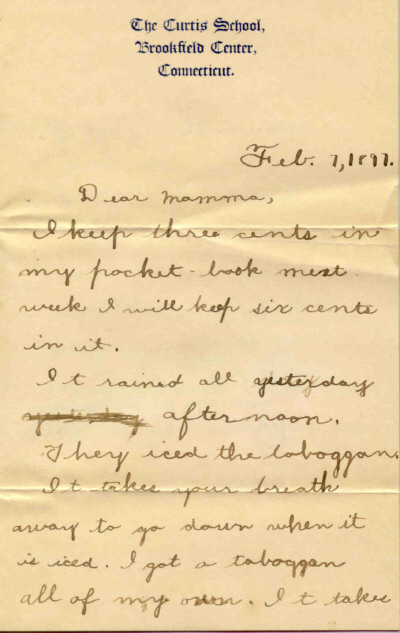 The Curtis School,
Brookfield Center,
Connecticut.
Feb. 7, 1897.
Dear Mamma,
I keep three cents in
my pocket-book next
week I will keep six cents
in it.
It rained all yesterday
yesterday afternoon.
They iced the toboggan.
It takes your breath
away to go down when it
is iced. I got a toboggan
all of my own. It takes